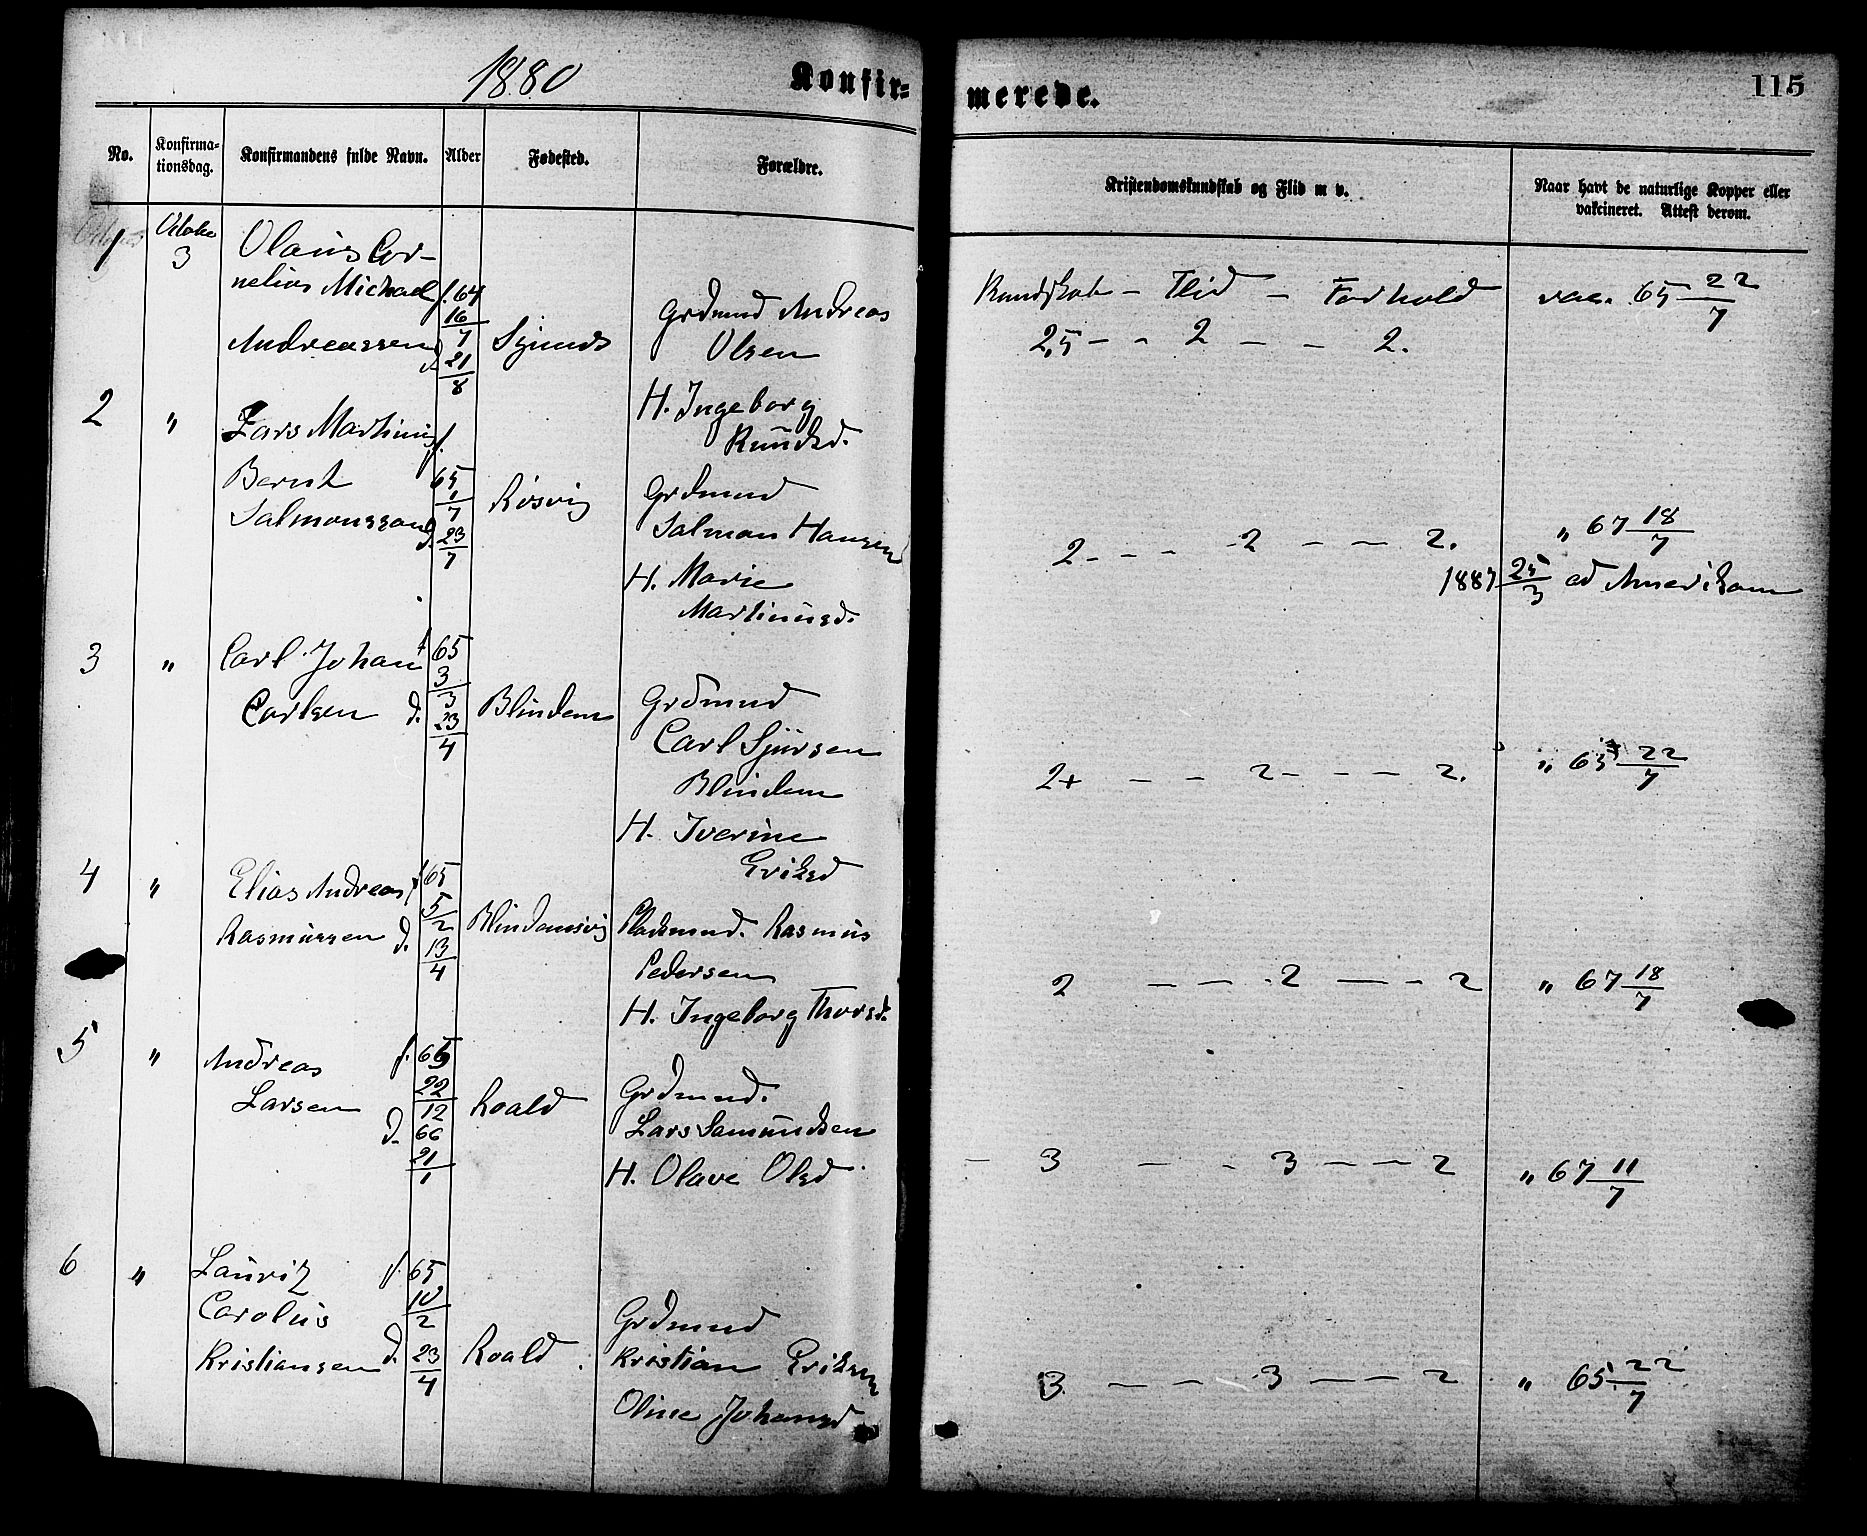 1880 Konfir= merede. 115
No. Konfirma-
tionsdag. Konfirmandens fulde Navn. Alder Fødested. Forældre. Kristendomskundskab og Flid m v. Naar havt de naturlige Kopper eller
vakcineret. Attest derom.
1 Oktober
3
Olaus Cor-
nelius Michael
Andreassen
f. 64
16/7
d. 21/8
Grdmnd Andreas
Olsen
H. Ingeborg
Knudsd.
Kundskab - Flid - Forhold
2,5 - - 2 - - 2.
vac. 65 22/7
2 "
Lars Martinus
Bernt
Salmonssen
f.
65
1/7
d. 23/7
Røsvig
Grdmnd
Salmon Hansen
H. Marie
Martinusd.
2 - - - 2 - - 2.
" 67 18/7
1887 25/3 ad Amerikam
3 "
Carl Johan
Carlsen
f 65
3/3
d. 23/4
Blindem
Grdmnd
Carl Sjursen
Blindem
H. Iverine
Eriksd
2+ - - 2 - - - 2.
" 65 22/7
4 "
Elias Andreas
Rasmussen
f 65
5/2
d. 13/4
Blindemsvig
Pladsmnd. Rasmus
Pedersen
H. Ingeborg Thorsd.
2 - - - 2 - - 2
" 67 18/7
5 "
Andreas
Larsen
f. 65
22/12
d. 66
21/1
Roald
Grdmnd.
Lars Samundsen
H. Olave Olsd
- 3 - - 3 - - 2
" 67 11/7
6 "
Lauritz
Carolus
Kristiansen
f. 65
10/2
d. 23/4
Roald.
Grdmnd
Kristian Eriksen
Oline Johansd
3 - - - 3 - - - 2
" 65 22/7